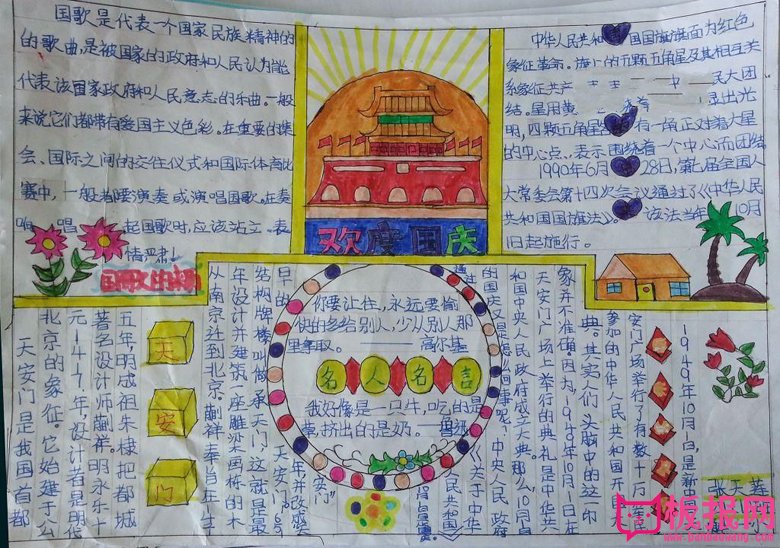 国歌是代表一个国家民族精神的
的歌曲,是被国家的政府和人民认为能
代表该国家政府和人民意志的乐曲。一般
来说它们都带有爱国主义色彩。在重要的集
会、国际之间的交往仪式和国际体育比
赛中,一般都要演奏或演唱国歌。在奏
唱 起国歌时,应该站立,表
情严肃!
欢度国庆
中华人民共和 国国旗旗面为红色,
象征革命。旗上的五颗五角星及其相互关
系象征共产 中 民大团
结。星用黄 显出光
明,四颗五角星 有一角正对着大星
的中心点,表示围绕着一个中心而团结
1990年6月 28日,第七届全国人
大常委会第十四次会议通过了《中华人民
共和国国旗法》 该法当年 10月
1日起施行。
天安门是我国首都
北京的象征。它始建于公
元147年,设计者是明代
著名设计师蒯祥。明永乐十
五年,明成祖朱棣把都城
从南京迁到北京,蒯祥奉旨在
年设计并建筑一座雕梁画栋的木
结构牌楼叫做承天门,这就是最
早的天安门
天
安
门
你要记住,永远要愉
快的多给别人,少从别人那
里拿取。 ——高尔基
名人名言
我好像是一只牛,吃的是
草,挤出的是奶。——鲁迅
1949年10月1日是新
安门广场举行了有数十万
参加的中华人民共和国开国
典。其实,人们头脑中的这一印
象并不准确。因为,1949年10月1日在
天安门广场上举行的典礼是中华
和国中央人民政府成立大典。那么,10月1日
的国庆又是怎么回事呢?
中央人民政府
《关于中华
人民共和国
板报网
www.banbaowang.com